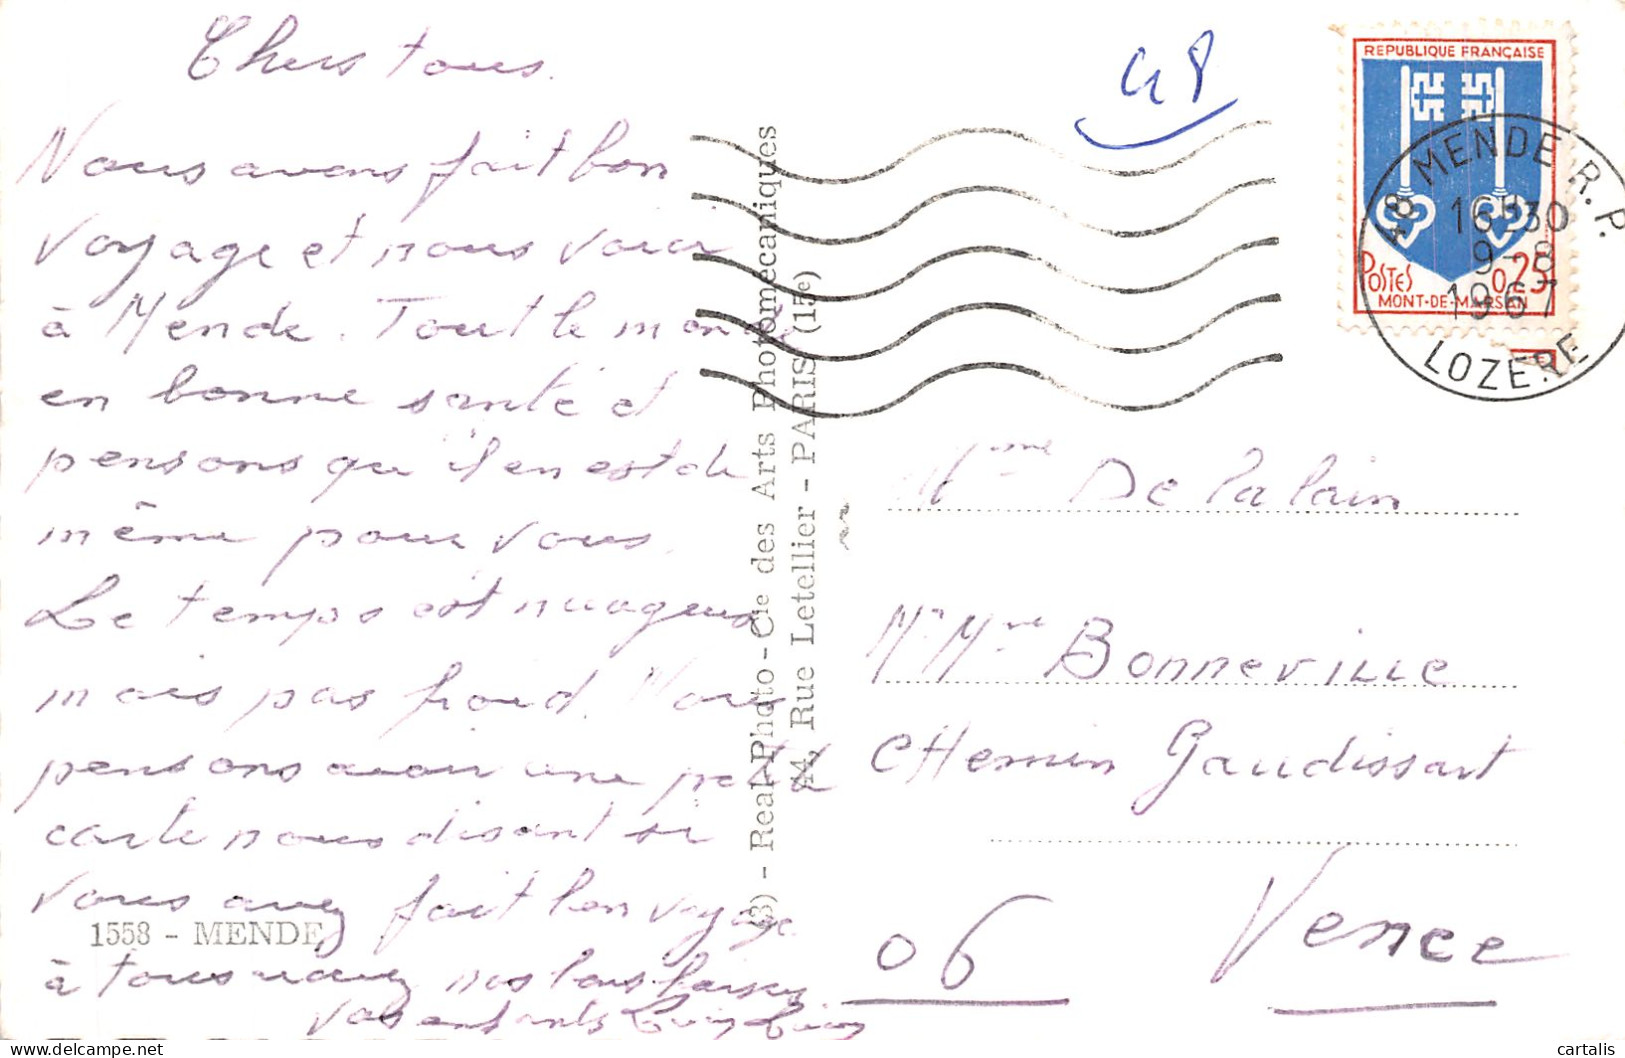 Chers tous.
Nous avons fait bon
voyage et nous voici
à Mende. Tout le monde
en bonne santé et
pensons qu'il en est de
même pour vous.
Le temps est nuageux
mais pas froid. Nous
pensons avoir une petite
carte nous disant si
vous avez fait bon voyage
à tous recevez nos bons baisers
Vos enfants
1558 - MENDE
(3) - Real-Photo-Cie des Arts Photomécaniques
44, Rue Letellier - PARIS (15e)
48
REPUBLIQUE FRANÇAISE
POSTES 0,25
MONT-DE-MARSAN
48 MENDE R.P.
16H30
9-8
1967
LOZERE
Mme Delalain
Mr Mme Bonneville
Chemin Gaudissart
06 Vence
cartalis